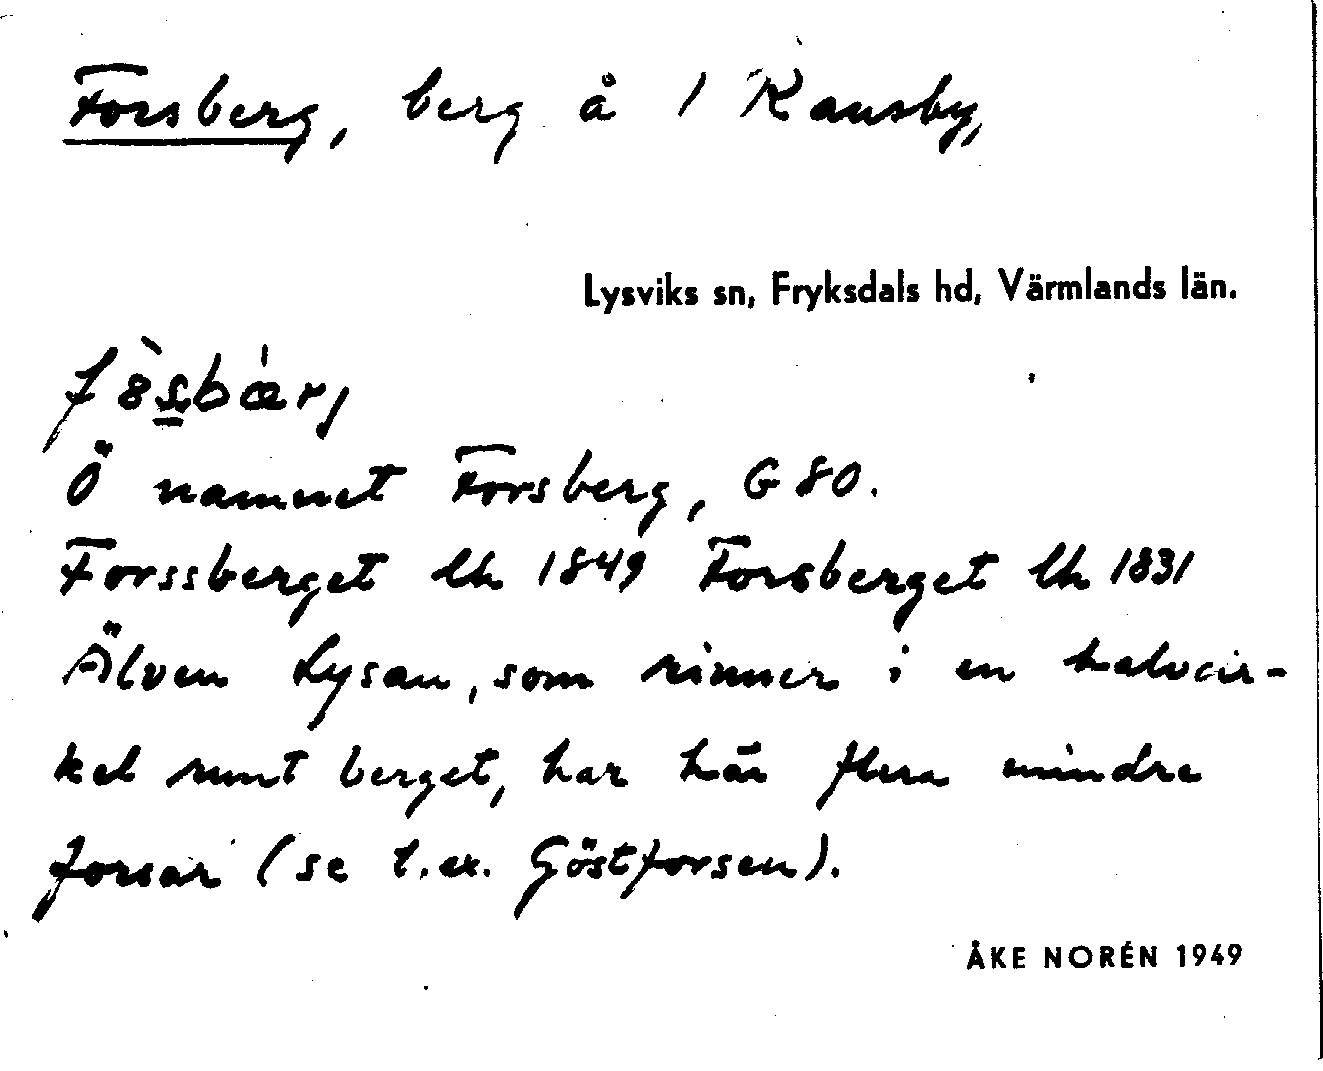 Forsberg, berg å 1 Ransby,
Lysviks sn, Fryksdals hd, Värmlands län.
Ö namnet Forsberg, G 80.
Forssberget lk 1849 Forsberget lk 1831
Älven Lysan, som rinner i en halvcir-
kel runt berget, har här flera mindre
forsar (se t.ex. Göstforsen).
ÅKE NORÉN 1949